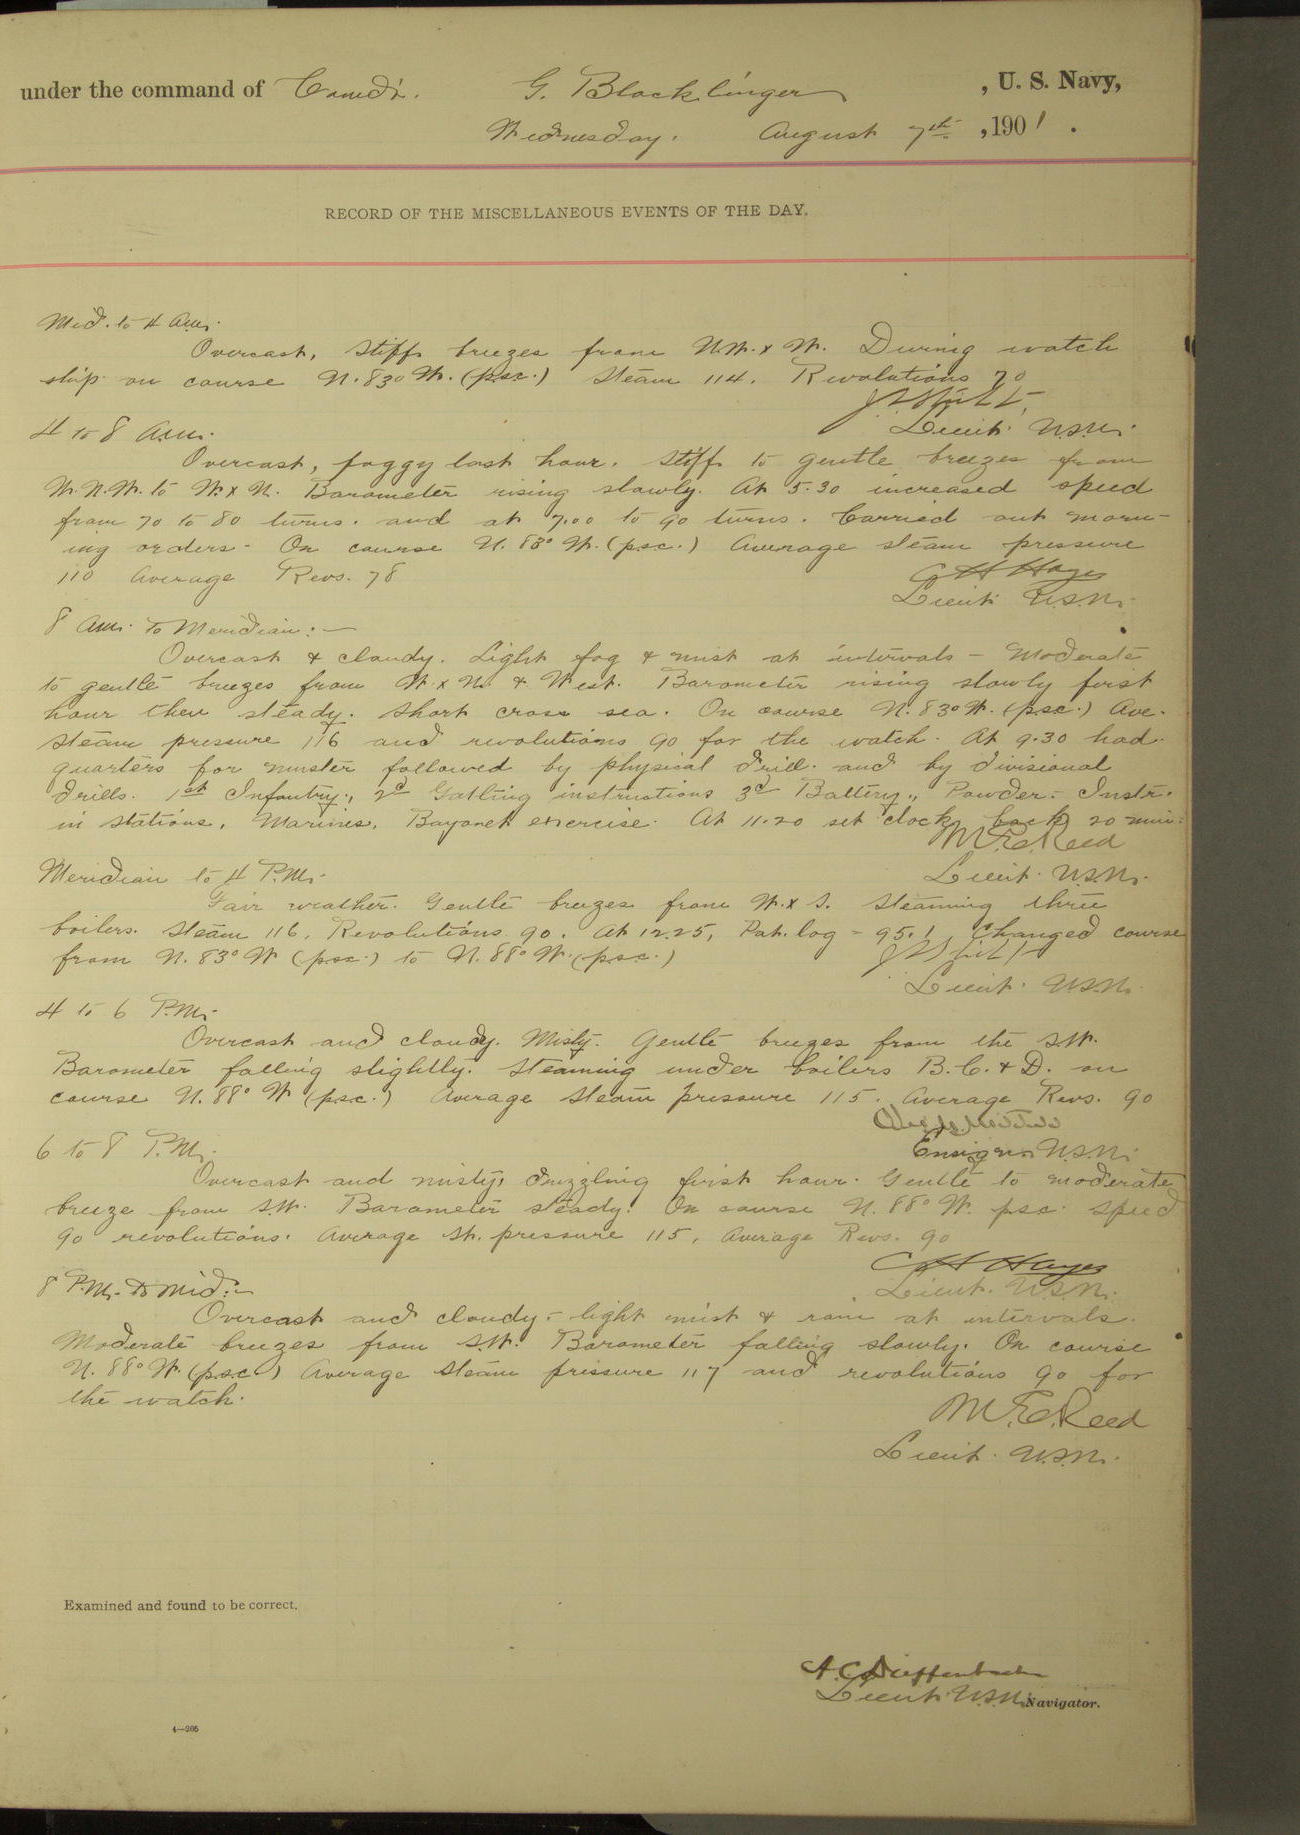 under the command of Comd'r. G. Blocklinger, U. S. Navy,
Wednesday. August 7th, 1901.
RECORD OF THE MISCELLANEOUS EVENTS OF THE DAY.
Mid. to 4 A.M.
Overcast, Stiff breezes from N.W. x W. During watch
ship on course N. 83° W. (p.s.c.) Steam 114. Revolutions 70
Lieut. U.S.N.
4 to 8 A.M.
Overcast, foggy last hour. Stiff to gentle breezes from
W.N.W. to W. x N. Barometer rising slowly. At 5.30 increased speed
from 70 to 80 turns. and at 7.00 to 90 turns. Carried out morn-
ing orders - On course N. 83° W. (p.s.c.) Average steam pressure
110 Average Revs. 78
C H Hayes
Lieut. U.S.N.
8 A.M. to Meridian: -
Overcast & cloudy. Light fog & mist at intervals - Moderate
to gentle breezes from W. x N. & West. Barometer rising slowly first
hour then steady. Short cross sea. On course N. 83° W. (p.s.c.) Ave.
steam pressure 116 and revolutions 90 for the watch. At 9.30 had
quarters for muster followed by physical drill. and by divisional
drills. 1st Infantry., 2d Gatling instructions 3d Battery., Powder. Instr.
in stations, Marines, Bayonet exercise. At 11.20 set clock back 20 min.
M. E. Reed
Lieut. U.S.N.
Meridian to 4 P.M.
Fair weather. Gentle breezes from W. x S. Steaming three
boilers. Steam 116, Revolutions 90. At 12.25, Pat. log - 95.1 Changed course
from N. 83° W (p.s.c.) to N. 88° W. (p.s.c.)
Lieut. U.S.N.
4 to 6 P.M.
Overcast and cloudy. Misty. Gentle breezes from the S.W.
Barometer falling slightly. Steaming under boilers B. C. & D. on
course N. 88° W (p.s.c.) Average steam pressure 115. Average Revs. 90
Ensign U.S.N.
6 to 8 P.M.
Overcast and misty, drizzling first hour. Gentle to moderate
breeze from S.W. Barometer steady. On course N. 88° W. p.s.c. speed
90 revolutions. Average St. pressure 115, Average Revs. 90
C H Hayes
Lieut. U.S.N.
8 P.M. to Mid: -
Overcast and cloudy - light mist & rain at intervals.
Moderate breezes from S.W. Barometer falling slowly. On course
N. 88° W. (p.s.c.) Average steam pressure 117 and revolutions 90 for
the watch.
M. E. Reed
Lieut. U.S.N.
Examined and found to be correct.
A. C. Dieffenbach
Lieut. U.S.N. Navigator.
4—205